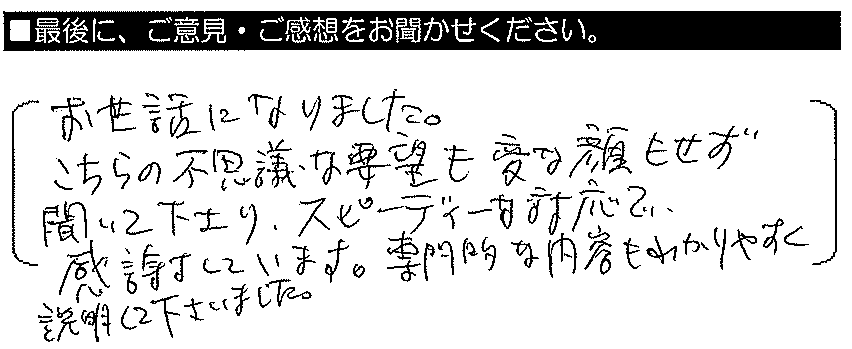 ■最後に、ご意見・ご感想をお聞かせください。
お世話になりました。
こちらの不思議な要望も変な顔もせず
聞いて下さり、スピーディーな対応で、
感謝しています。専門的な内容もわかりやすく
説明して下さいました。